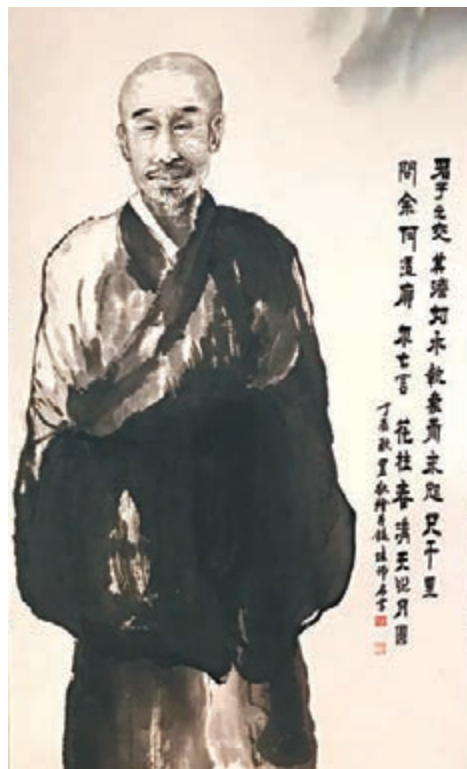 君子之交其淡如水執象而求咫尺千里
問余何適廓尔亡言花枝春滿天心月圓
丁亥秋